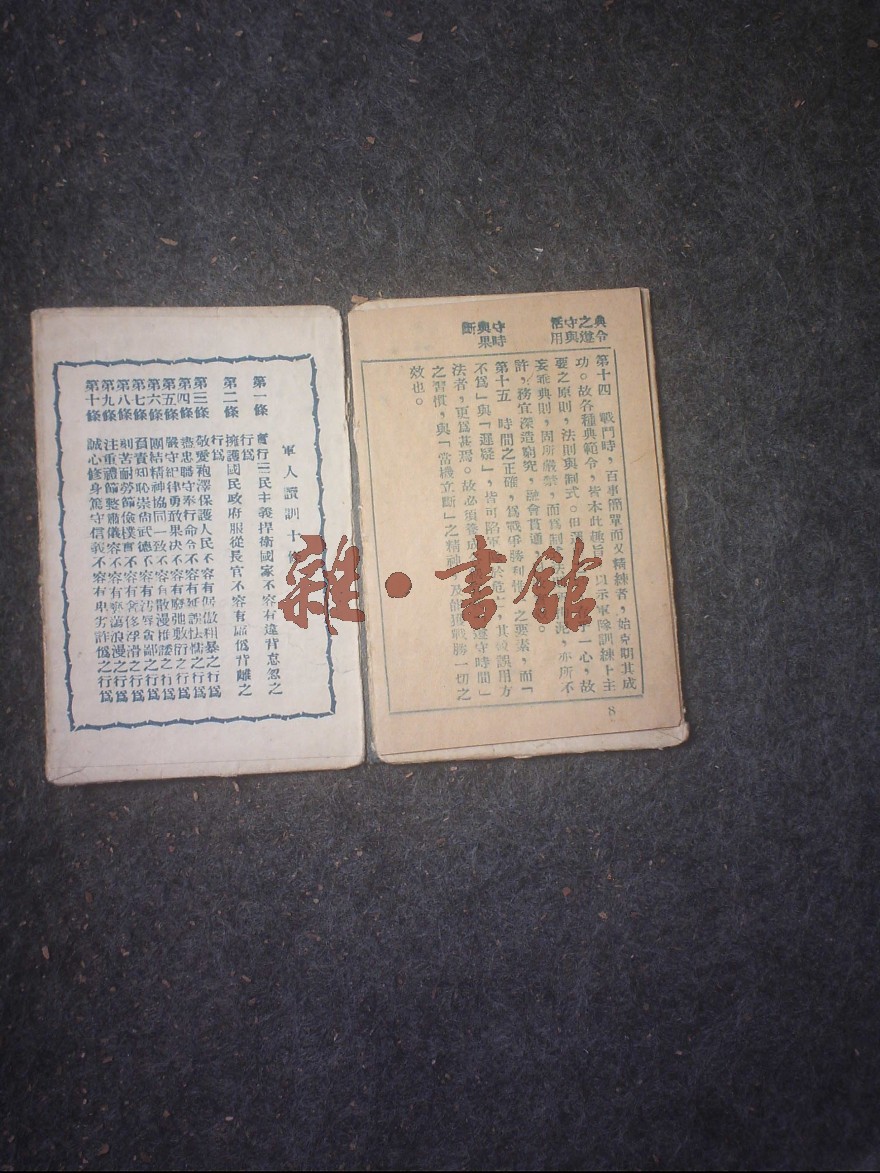 典令之遵守與活用
第十四　戰鬥時，百事簡單而又精練者，始克期其成
功。故各種典範令，皆本此趣旨，以示軍隊訓練上主
要之原則，法則與制式。但運一心，故
妄乖典則，固所嚴禁，而為制泥，亦所不
許，務宜深造窮究，融會貫通。
守時與果斷
第十五　時間之正確，為戰爭勝利惟之要素，而「
不為」與「遲疑」，皆可陷軍於危其較誤用方
法者，更為甚焉。故必須養成遵守時間」
之習慣，與「當機立斷」之精神，獲戰勝一切之
效也。
8
軍人讀訓十
第一條　實行三民主義捍衛國家不容有違背怠忽之
行為
第二條　擁護國民政府服從長官不容有虛偽背離之
行為
第三條　敬愛袍澤保護人民不容有倨傲粗暴之行為
第四條　盡忠職守奉行命令不容有延誤怯懦之行為
第五條　嚴守紀律勇敢果決不容有廢弛敷衍之行為
第六條　團結精神協同一致不容有散漫推諉之行為
第七條　負責知恥崇尚武德不容有污辱貪鄙之行為
第八條　刻苦耐勞節儉樸實不容有奢侈浮滑之行為
第九條　注重禮節整肅儀容不容有褻蕩浪漫之行為
第十條　誠心修身篤守信義不容有卑劣詐偽之行為
雜·書館